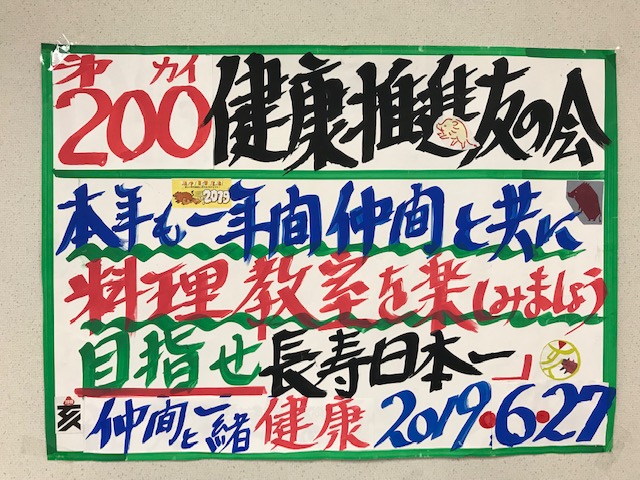 第200カイ健康推進友の会
2019
本年も一年間仲間と共に
料理教室を楽しみましょう
目指せ長寿日本一」
亥 仲間と一緒 健康 2019・6・27